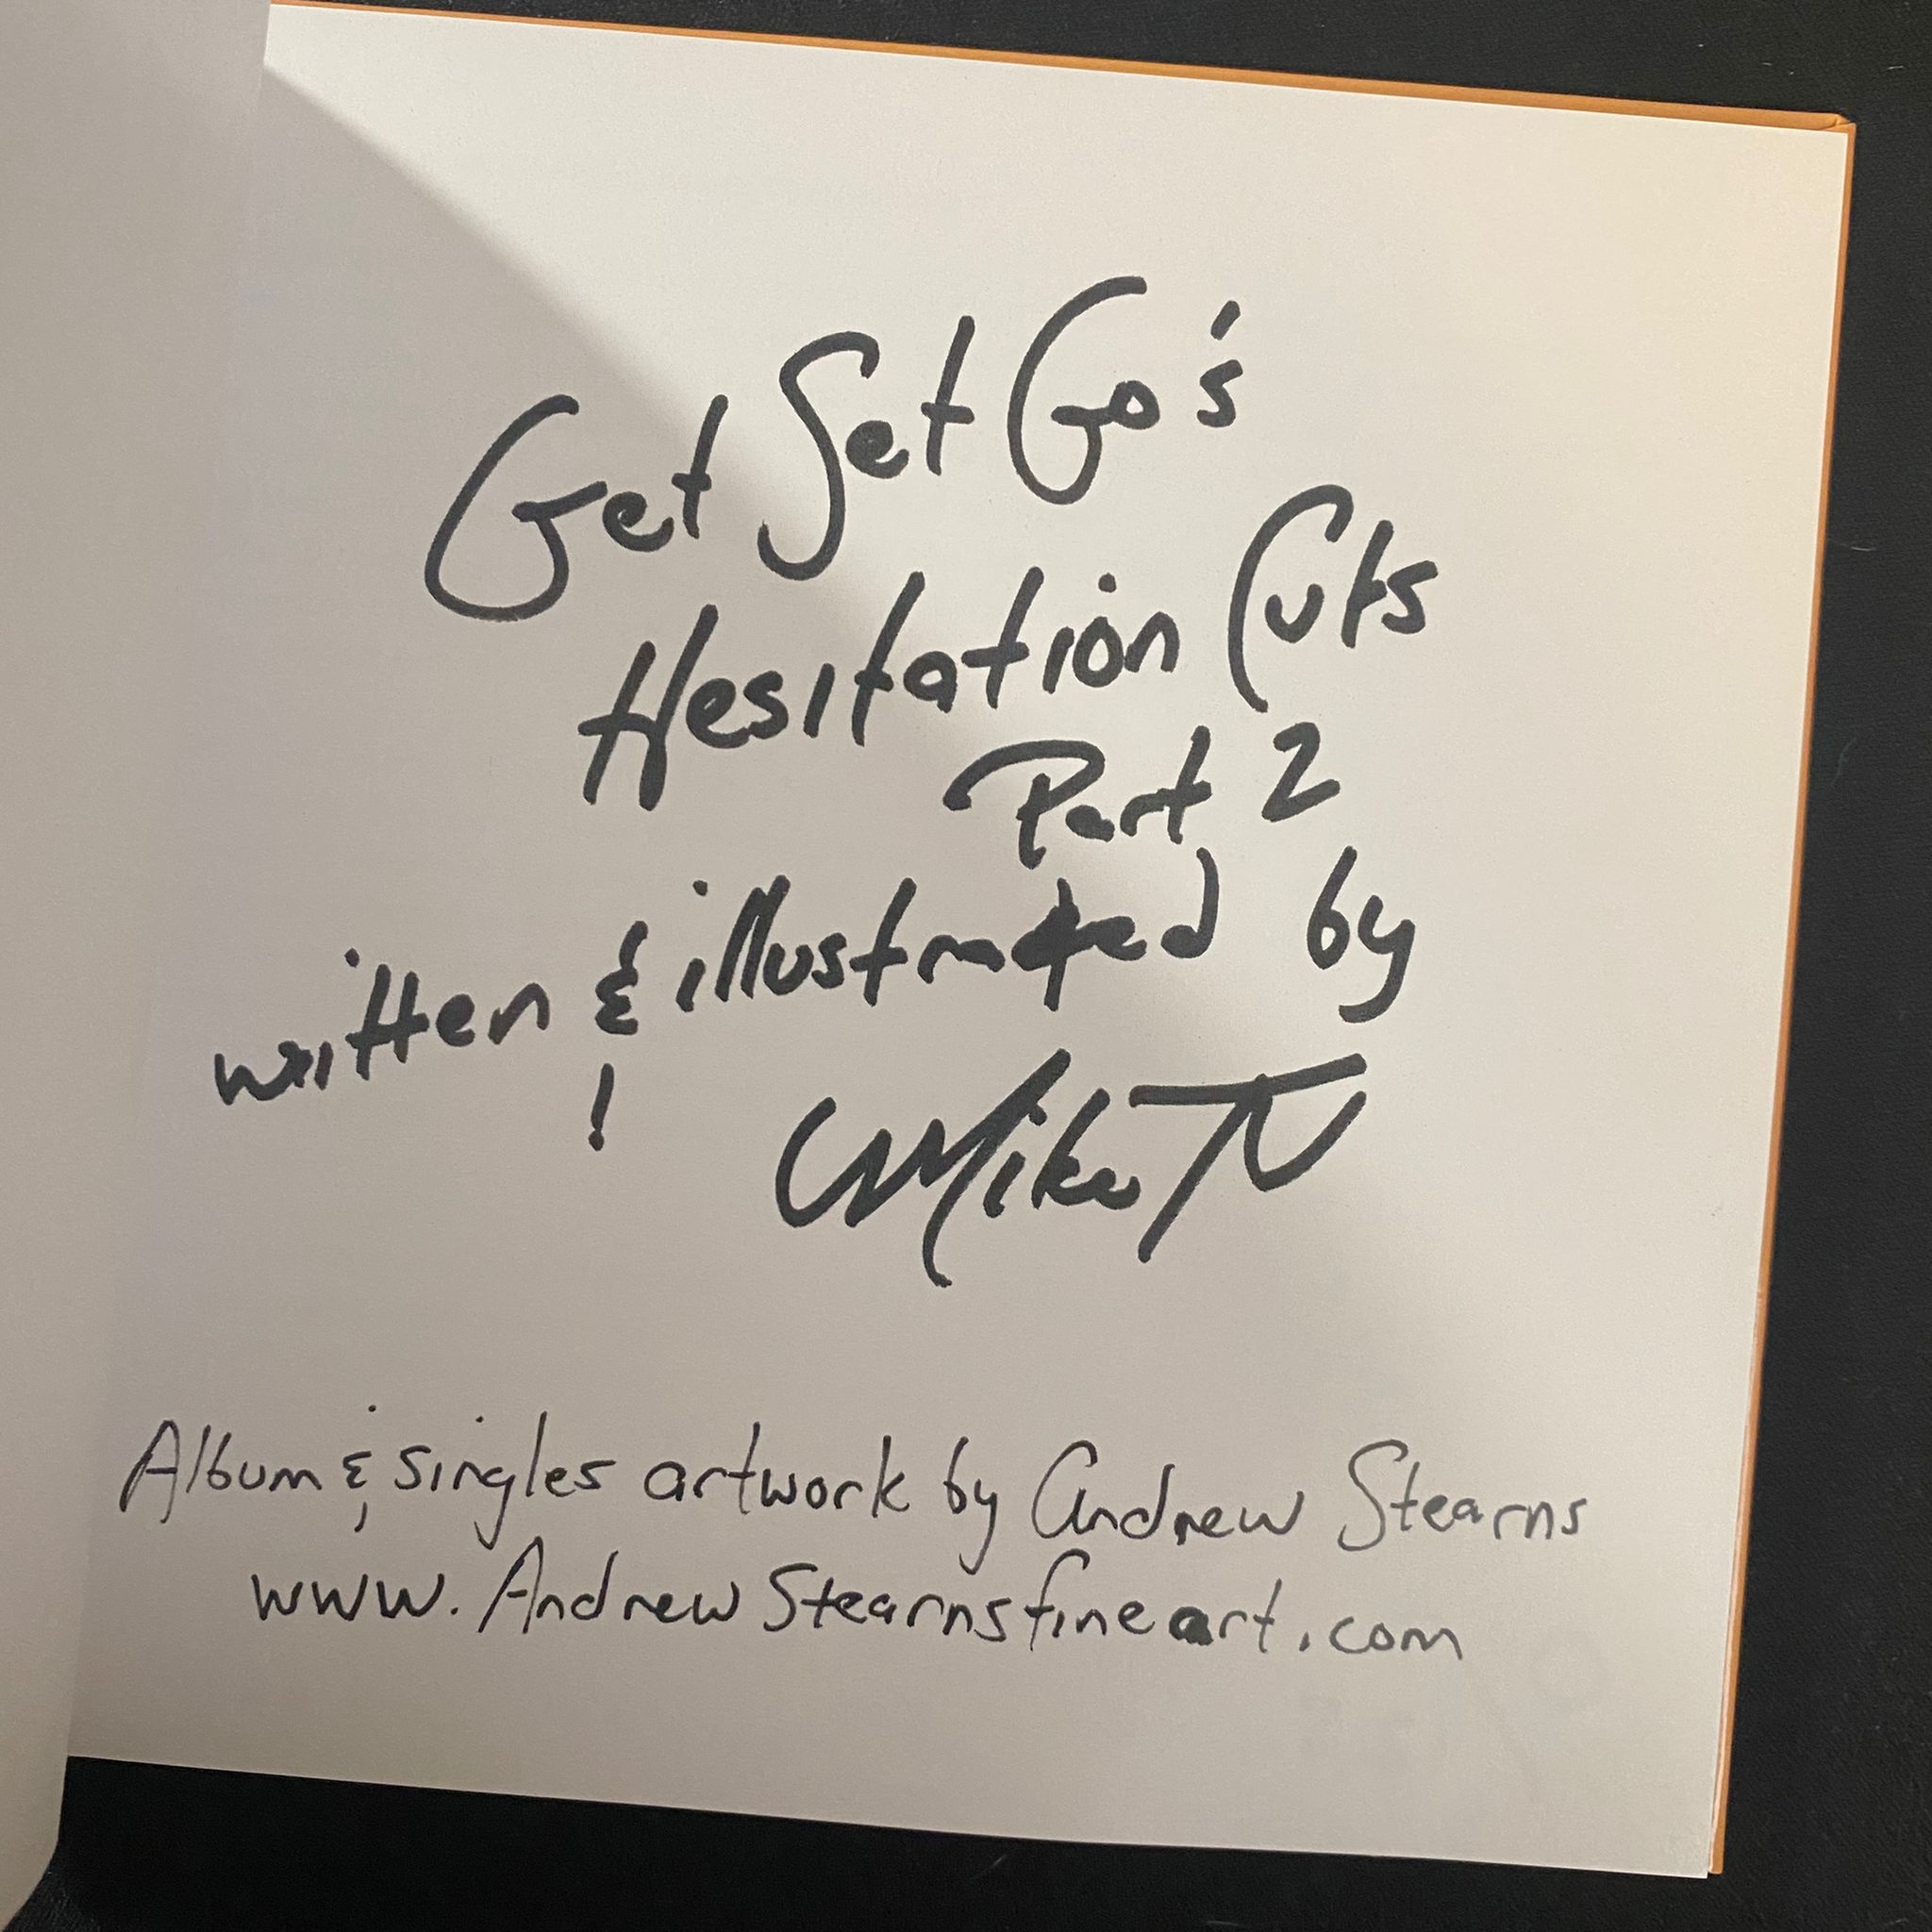 Get Set Go's
Hesitation Cuts
Part 2
written & illustrated by
Mike TV
Album & singles artwork by Andrew Stearns
www.AndrewStearnsfineart.com